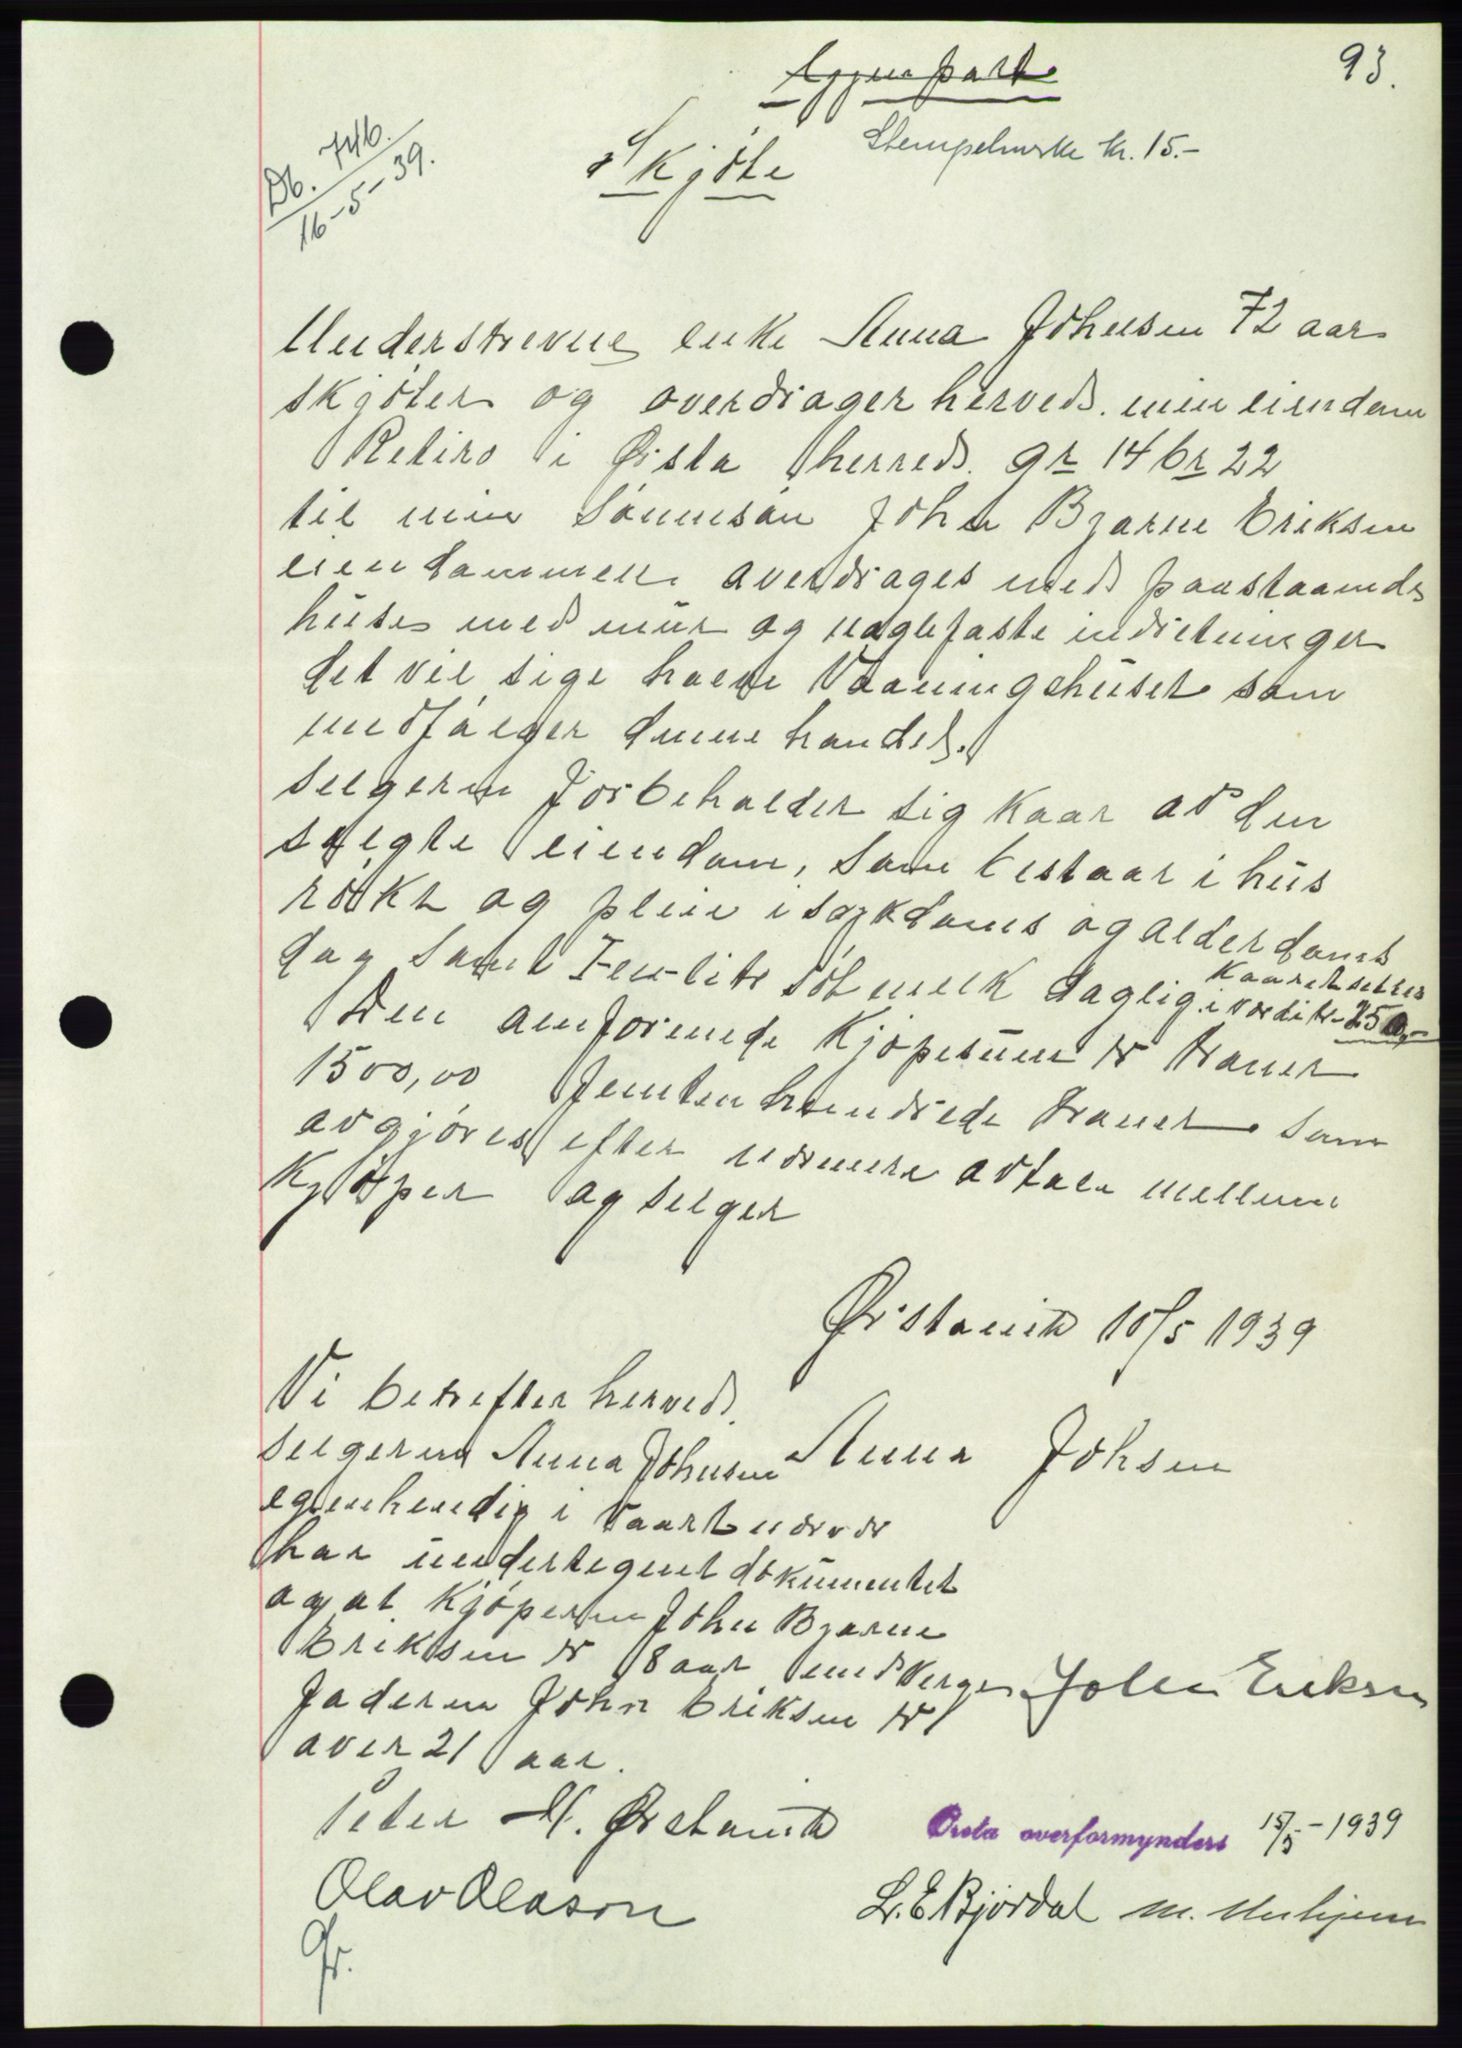 93.
Gjenpart
Stempelmerke kr. 15.-
Skjöte
Db. 746.
16-5-39.
Understrevne enke Anna Johnsen 72 aar
skjöter og overdrager herved min eiendom
Retiro i Ørsta herred gr 14 br 22
til min Sönnsön John Bjarne Eriksen
eiendommen overdrages med paastaaende
huse med mur og naglefaste indretninger
det vil sige halve Vaaningshuset som
medfölger denne handel.
selgeren forbeholder sig kaar av den
solgte eiendom, som bestaar i hus
rökt og pleie i sygdoms og alderdoms
dag samt Een liter söt melk daglig. Kaaret settes
i verdi kr. 250,-
Den omforenede Kjöpesum er kroner
1500,00 femtenhundrede kroner som
avgjöres efter nærmere avtale mellem
Kjöper og selger
Ørstavik 10/5 1939
Vi betrefter herved
selgeren Anna Johnsen
egenhendig i vaart nærvær
har undertegnet dokumentet
og at Kjöperen John Bjarne
Eriksen er 8 aar med Verge
faderen John Eriksen er
over 21 aar.
Anna Johsen
John Eriksen
Peter M. Ørstavik
Olav Olason
Ørsta overformynderi 15/5-1939
L. E. Bjørdal M.